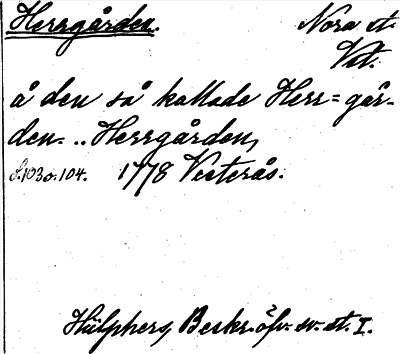 Herrgården. Nora st.
Vst.
å den så kallade Herr=går-
den. .. Herrgården,
s.103 o. 104. 1778 Vesterås.
Hülphers, Beskr. öfv. sv. st. I.